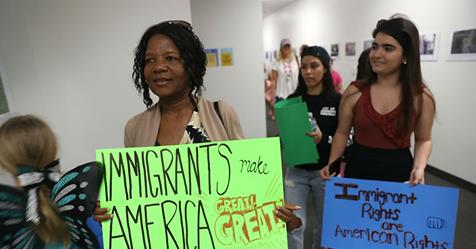 IMMIGRANTS make
AMERICA GREAT!
GREAT!
Immigration
Rights
are
American Rights